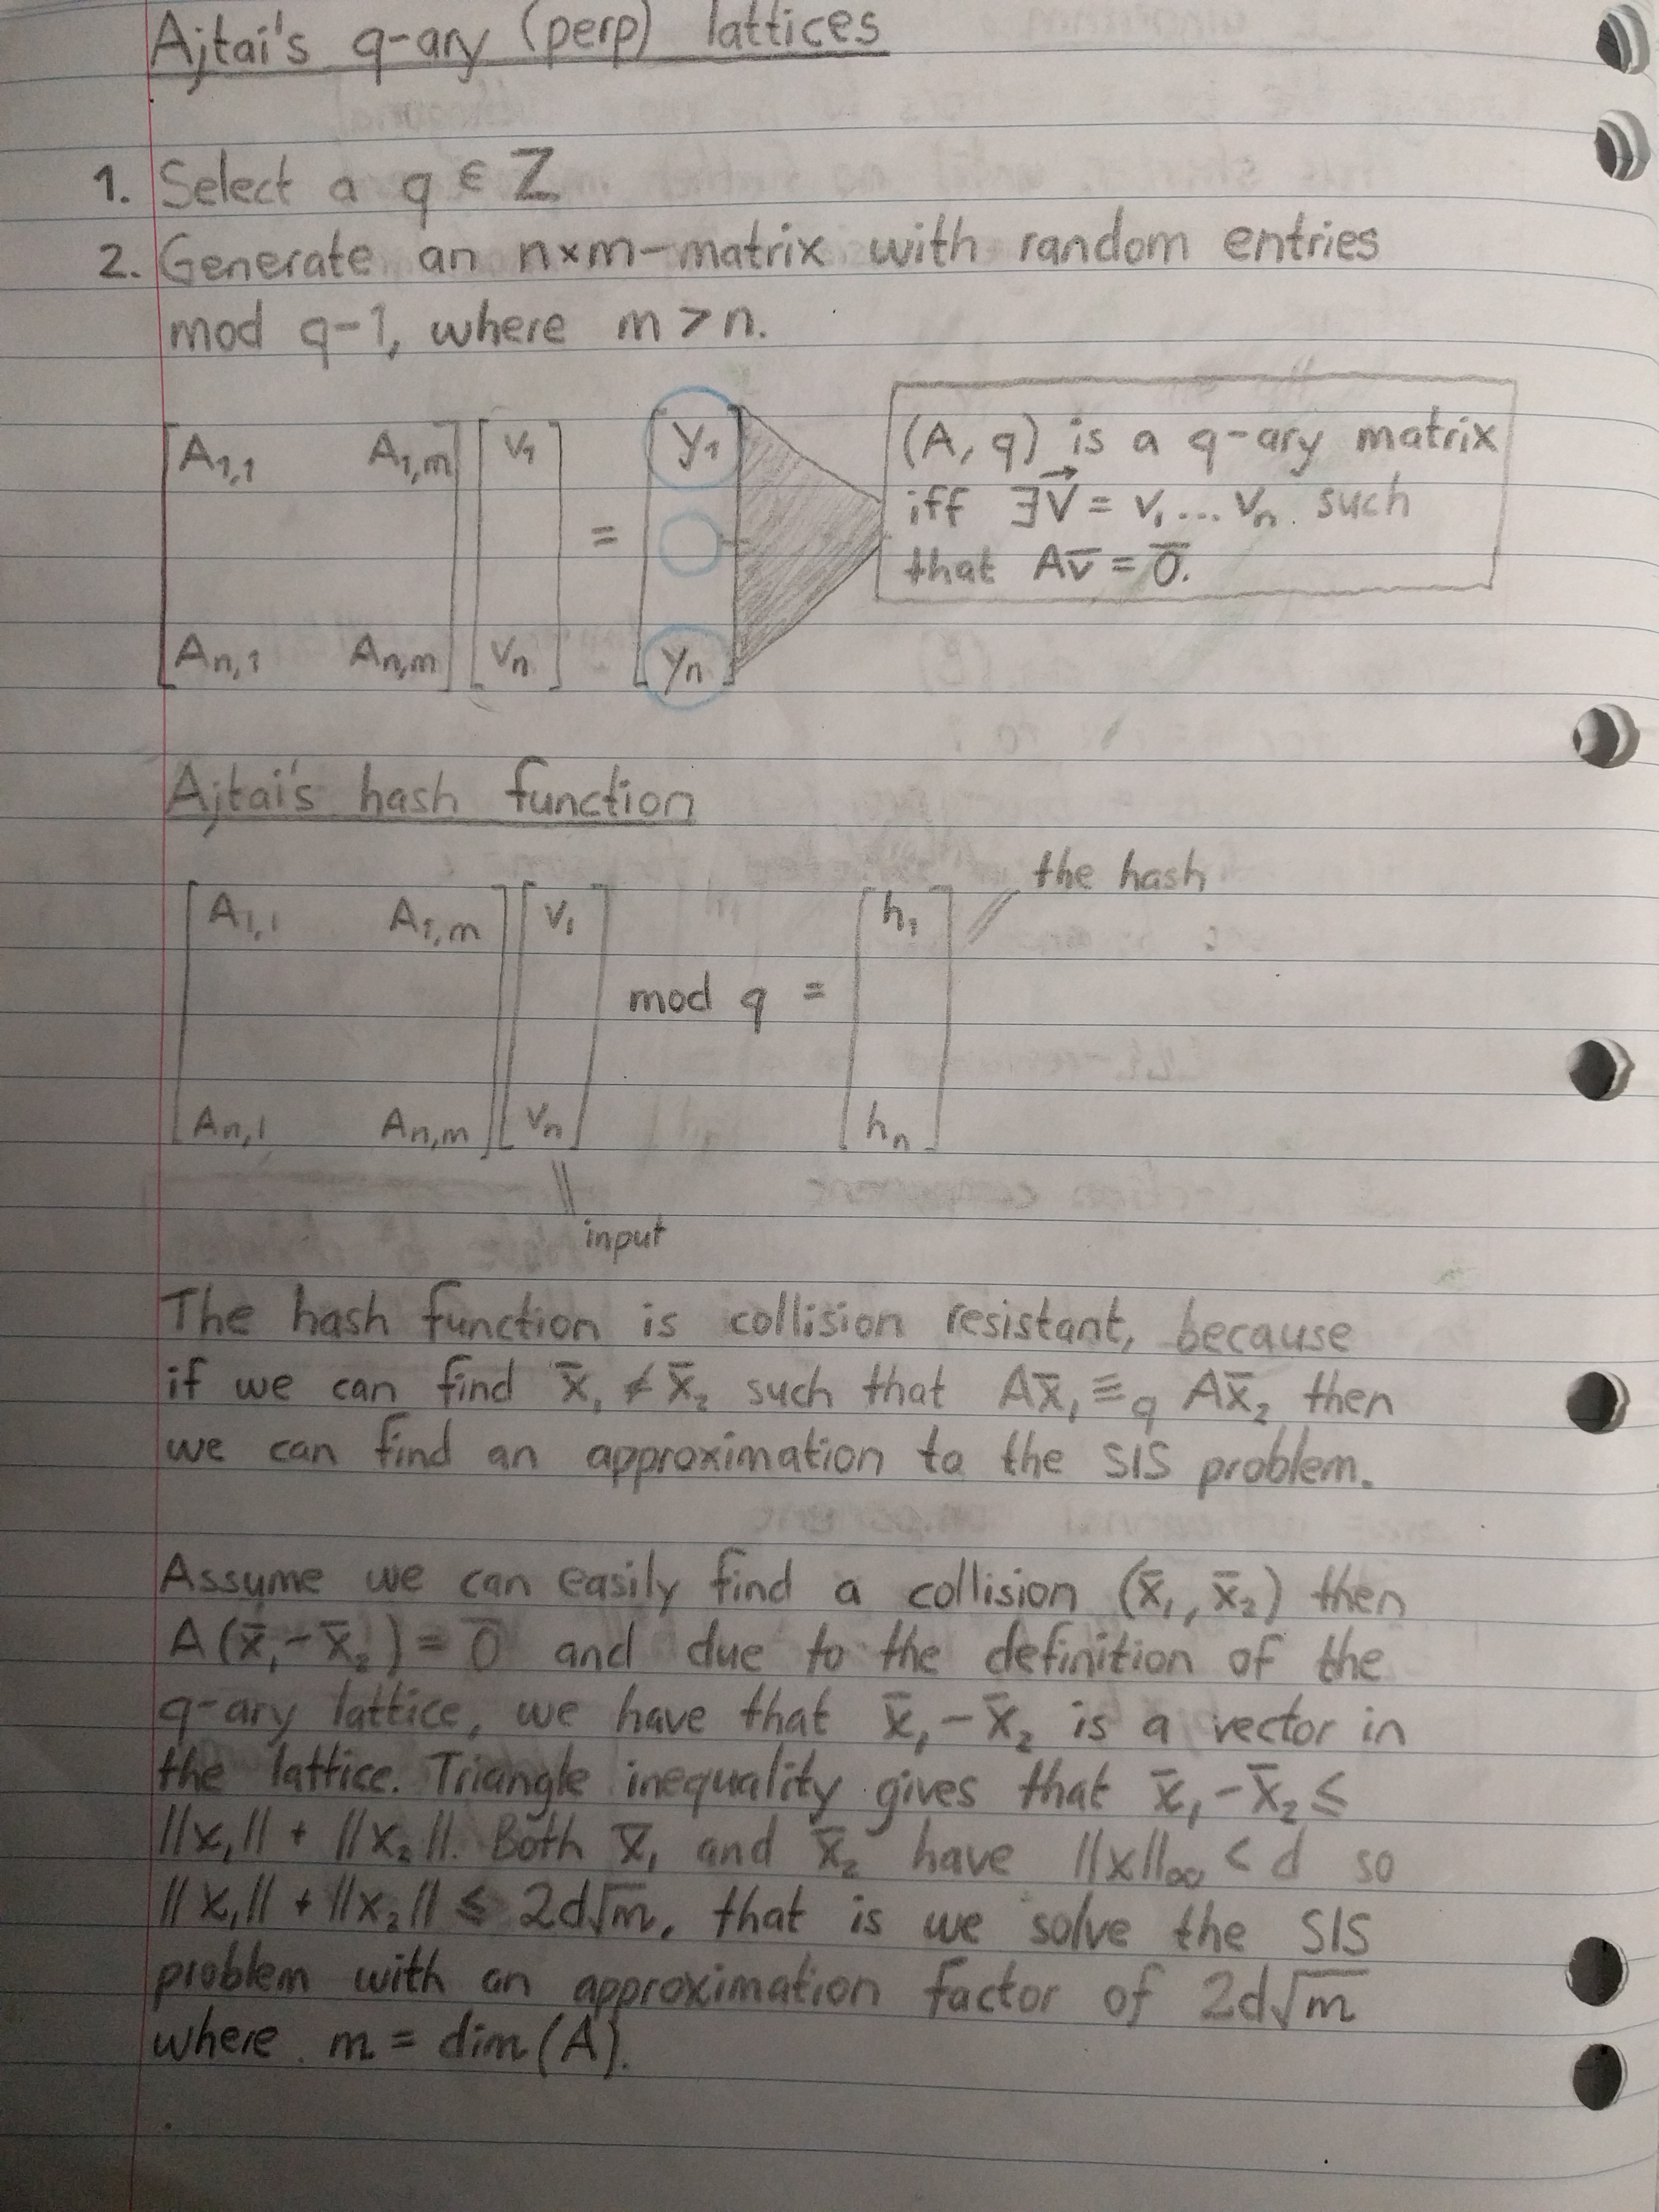 Ajtai's q-ary (perp) lattices
1. Select a q ∈ Z
2. Generate an n×m-matrix with random entries
mod q-1, where m > n.
A1,1 A1,m v1 y1
=
An,1 An,m vn yn
(A, q) is a q-ary matrix
iff ∃v⃗ = v₁ ... vₙ such
that Av̅ = 0̅.
Ajtai's hash function
the hash
A1,1 A1,m v1 h1
mod q =
An,1 An,m vn hn
input
The hash function is collision resistant, because
if we can find x̅₁ ≠ x̅₂ such that Ax̅₁ ≡q Ax̅₂ then
we can find an approximation to the SIS problem.
Assume we can easily find a collision (x̅₁, x̅₂) then
A(x̅₁ - x̅₂) = 0̅ and due to the definition of the
q-ary lattice, we have that x̅₁ - x̅₂ is a vector in
the lattice. Triangle inequality gives that x̅₁ - x̅₂ ≤
||x₁|| + ||x₂||. Both x̅₁ and x̅₂ have ||x||∞ < d so
||x₁|| + ||x₂|| ≤ 2d√m, that is we solve the SIS
problem with an approximation factor of 2d√m
where m = dim(A).